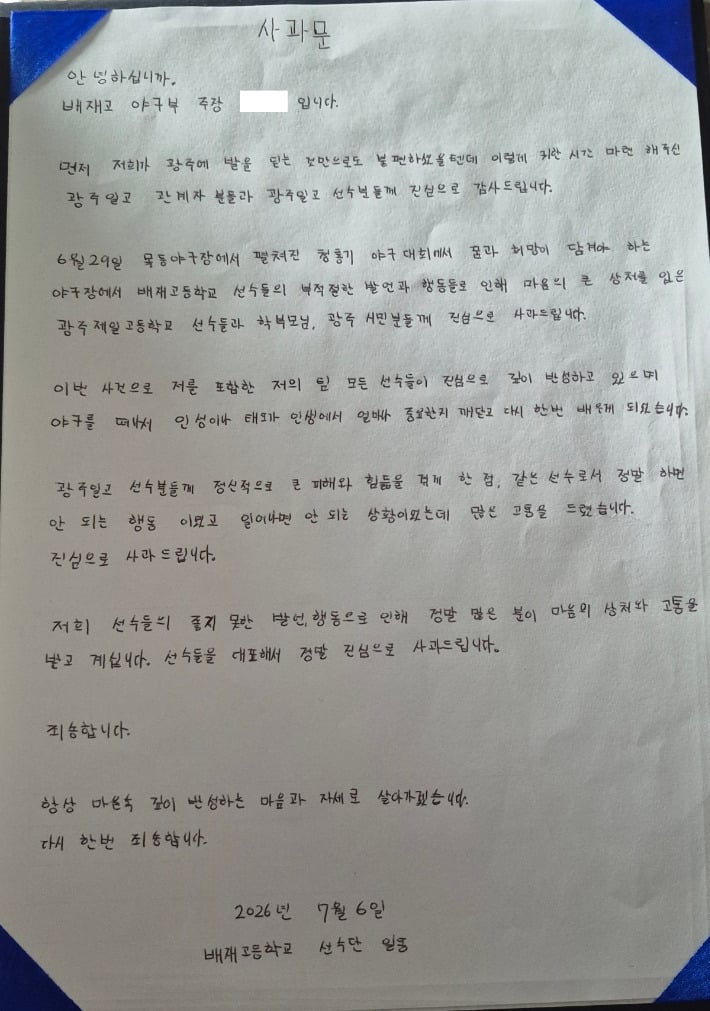 사과문
안녕하십니까.
배재고 야구부 주장 입니다.
먼저 저희가 광주에 발을 딛는 것만으로도 불편하셨을텐데 이렇게 귀한 시간 마련 해주신
광주일고 관계자 분들과 광주일고 선수분들께 진심으로 감사드립니다.
6월 29일 목동야구장에서 펼쳐진 청룡기 야구대회에서 꿈과 희망이 담겨야 하는
야구장에서 배재고등학교 선수들의 부적절한 발언과 행동들로 인해 마음의 큰 상처를 입은
광주제일고등학교 선수들과 학부모님, 광주 시민분들께 진심으로 사과드립니다.
이번 사건으로 저를 포함한 저의 팀 모든 선수들이 진심으로 깊이 반성하고 있으며
야구를 떠나서 인성이나 태도가 인생에서 얼마나 중요한지 깨닫고 다시 한번 배우게 되었습니다.
광주일고 선수분들께 정신적으로 큰 피해와 힘듦을 겪게 한 점, 같은 선수로서 정말 하면
안 되는 행동 이었고 일어나면 안 되는 상황이었는데 많은 고통을 드렸습니다.
진심으로 사과드립니다.
저희 선수들의 좋지 못한 발언, 행동으로 인해 정말 많은 분이 마음의 상처와 고통을
받고 계십니다. 선수들을 대표해서 정말 진심으로 사과드립니다.
죄송합니다.
항상 마음속 깊이 반성하는 마음과 자세로 살아가겠습니다.
다시 한번 죄송합니다.
2026년 7월 6일
배재고등학교 선수단 일동